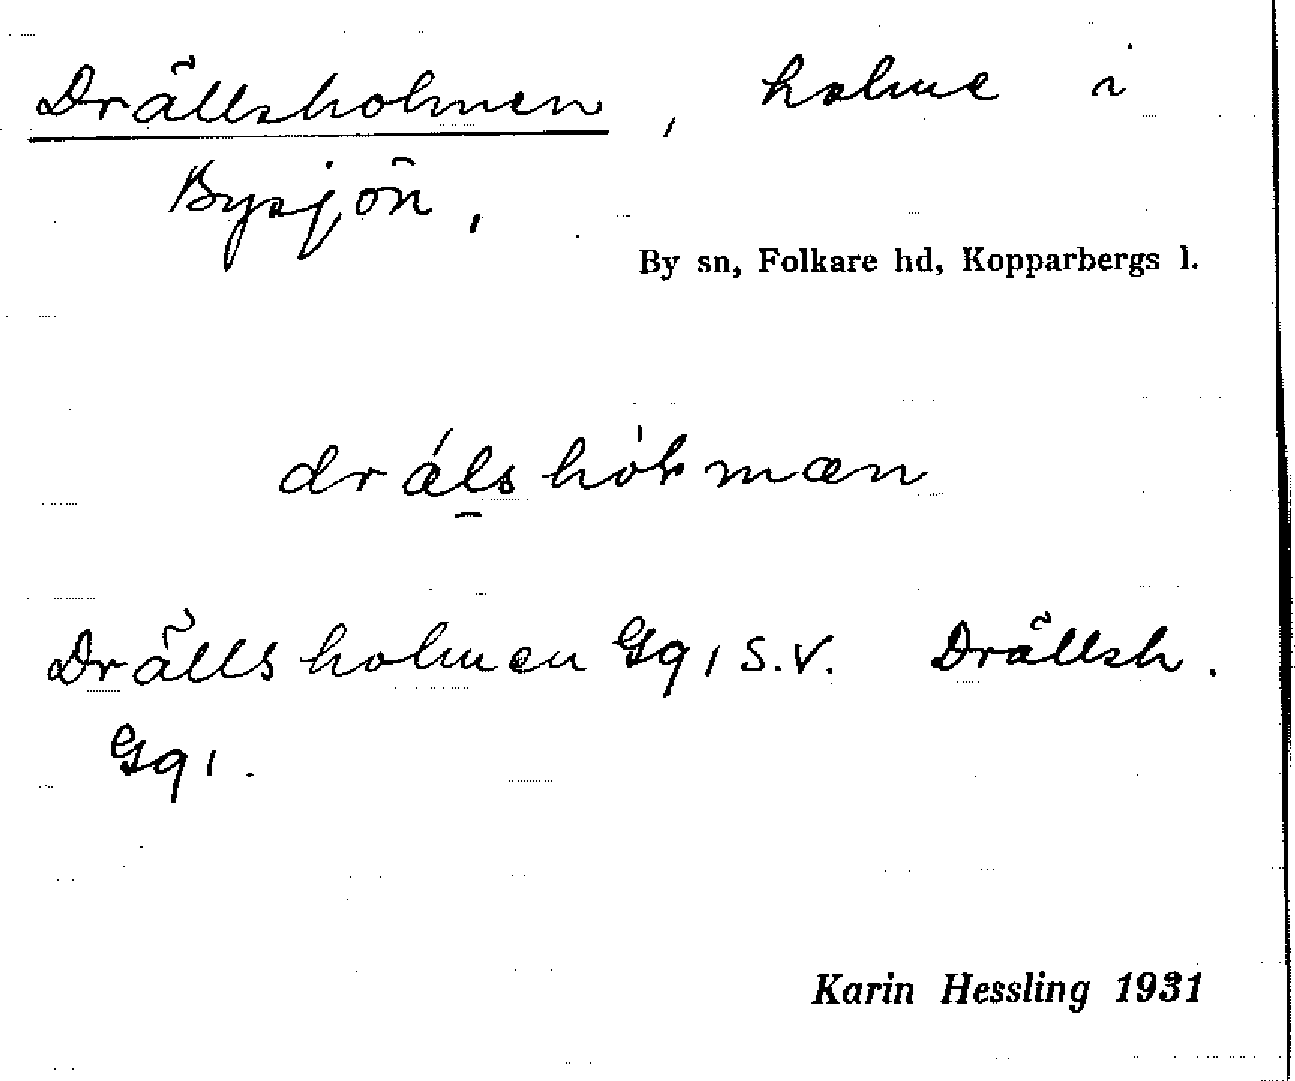 Drällsholmen, holme i
Bysjön,
By sn, Folkare hd, Kopparbergs l.
drálshòłmæn
Drällsholmen Gq, S.V. Drällsh.
Gq,.
Karin Hessling 1931